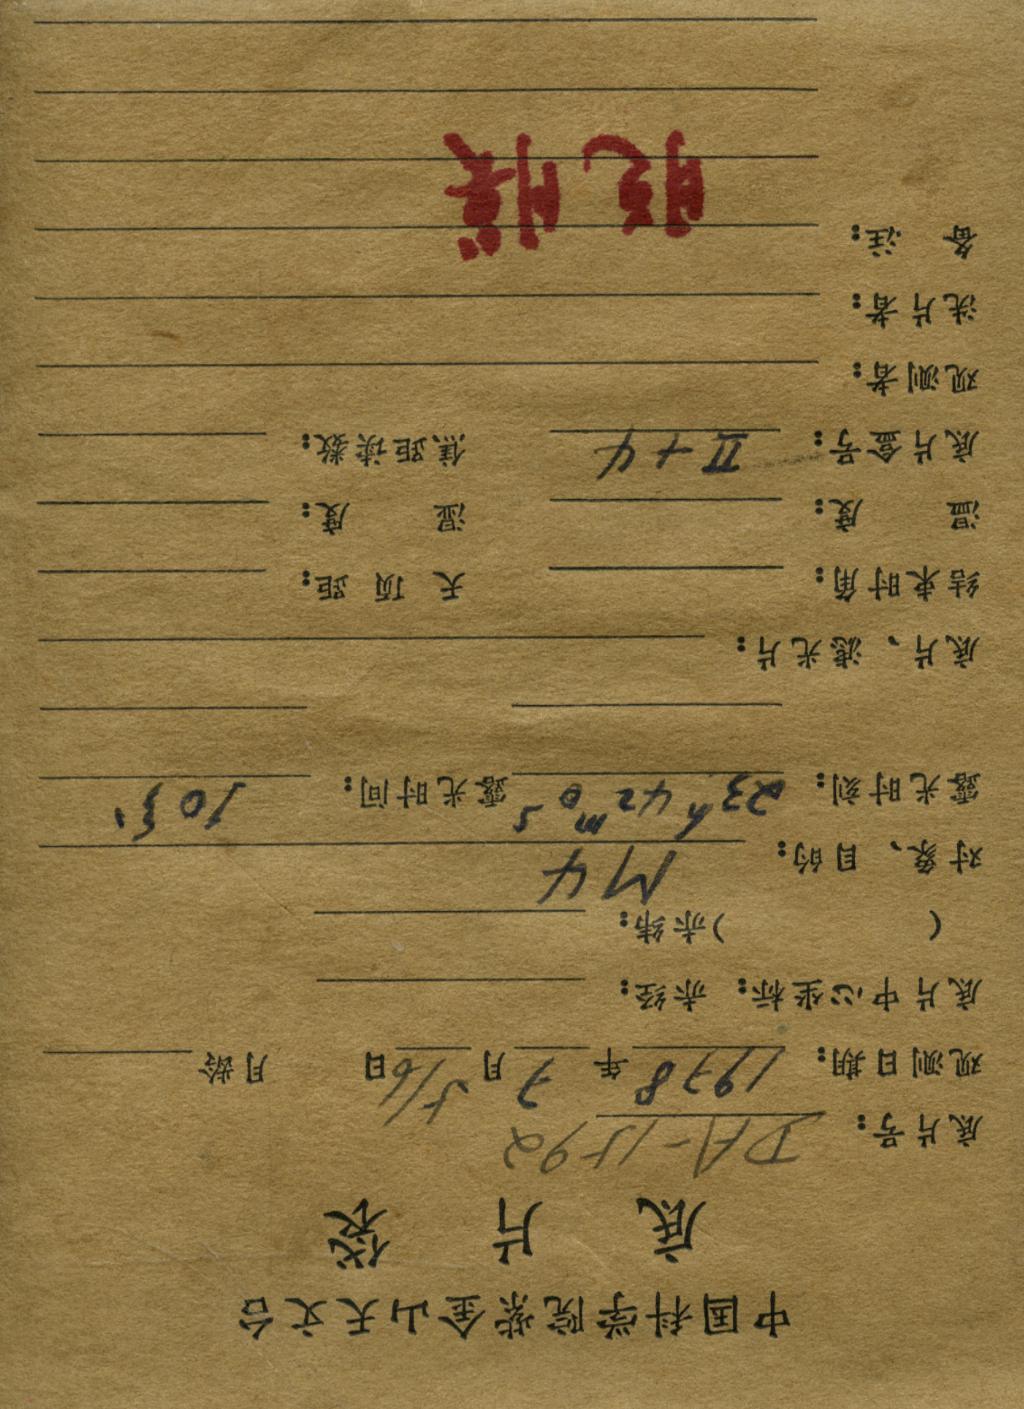 中国科学院紫金山天文台
底片袋
底片号: DA-1592
观测日期: 1978年7月5/6日 月龄
底片中心坐标: 赤经:
( )赤纬:
对象、目的: M4
露光时刻: 23h42m0s 露光时间: 10分
底片、滤光片:
结束时角: 天顶距:
温度: 湿度:
底片盒号: II+4 焦距读数:
观测者:
洗片者:
备注:
脱膜